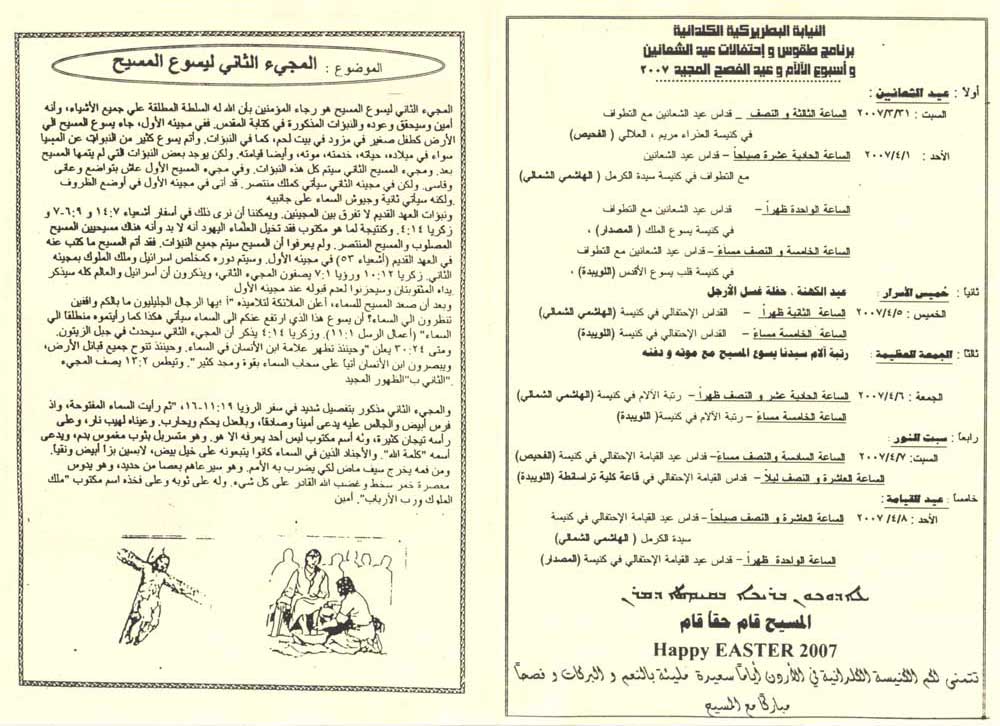 النيابة البطريركية الكلدانية
برنامج طقوس و إحتفالات عيد الشعانين
و أسبوع الآلام و عيد الفصح المجيد ٢٠٠٧
أولاً : عيد الشعانين :
السبت : ٢٠٠٧/٣/٣١ الساعة الثالثة و النصف – قداس عيد الشعانين مع التطواف
في كنيسة العذراء مريم ، العلالي ( الفحيص)
الأحد : ٢٠٠٧/٤/١ الساعة الحادية عشرة صباحاً – قداس عيد الشعانين
مع التطواف في كنيسة سيدة الكرمل ( الهاشمي الشمالي)
الساعة الواحدة ظهراً – قداس عيد الشعانين مع التطواف
في كنيسة يسوع الملك ( المصدار) ،
الساعة الخامسة و النصف مساءً – قداس عيد الشعانين مع التطواف
في كنيسة قلب يسوع الأقدس ( اللويبدة) ،
ثانياً : خميس الأسرار : عيد الكهنة ، حفلة غسل الأرجل
الخميس : ٢٠٠٧/٤/٥ الساعة الثانية ظهراً – القداس الإحتفالي في كنيسة (الهاشمي الشمالي)
الساعة الخامسة مساءً – القداس الإحتفالي في كنيسة (اللويبدة)
ثالثاً : الجمعة العظيمة : رتبة آلام سيدنا يسوع المسيح مع موته و دفنه
الجمعة : ٢٠٠٧/٤/٦ الساعة الحادية عشر و النصف ظهراً – رتبة الآلام في كنيسة (الهاشمي الشمالي)
الساعة الخامسة مساءً – رتبة الآلام في كنيسة( اللويبدة)
رابعاً : سبت النور :
السبت: ٢٠٠٧/٤/٧ الساعة السادسة و النصف مساءً– قداس عيد القيامة الإحتفالي في كنيسة (الفحيص)
الساعة العاشرة و النصف ليلاً – قداس القيامة الإحتفالي في قاعة كلية تراسنطة (اللويبدة)
خامساً : عيد القيامة :
الأحد : ٢٠٠٧/٤/٨ الساعة العاشرة و النصف صباحاً – قداس عيد القيامة الإحتفالي في كنيسة
سيدة الكرمل ( الهاشمي الشمالي)
الساعة الواحدة ظهراً – قداس عيد القيامة الإحتفالي في كنيسة (المصدار)
المسيح قام حقاً قام
Happy EASTER 2007
تتمنى لكم الكنيسة الكلدانية في الأردن أياماً سعيدة مليئة بالنعم و البركات و فصحاً
مباركاً مع المسيح
الموضوع : المجيء الثاني ليسوع المسيح
المجيء الثاني ليسوع المسيح هو رجاء المؤمنين بأن الله له السلطة المطلقة على جميع الأشياء، وأنه
أمين وسيحقق وعوده والنبؤات المذكورة في كتابة المقدس. ففي مجيئه الأول، جاء يسوع المسيح الي
الأرض كطفل صغير في مزود في بيت لحم، كما في النبؤات. وأتم يسوع كثير من النبوات عن المسيا
سواء في ميلاده، حياته، خدمته، موته، وأيضا قيامته. ولكن يوجد بعض النبؤات التي لم يتمها المسيح
بعد. ومجيء المسيح الثاني سيتم كل هذه النبؤات. وفي مجيء المسيح الأول عاش بتواضع وعانى
وقاسى. ولكن في مجيئه الثاني سيأتي كملك منتصر. قد أتى في مجيئه الأول في أوضع الظروف
.ولكنه سيأتي ثانية وجيوش السماء على جانبيه
ونبؤات العهد القديم لا تفرق بين المجيئين. ويمكننا أن نرى ذلك في أسفار أشعياء ١٤:٧ و ٦:٩-٧ و
زكريا ٤:١٤. وكنتيجة لما هو مكتوب فقد تخيل العلماء اليهود أنه لا بد وأنه هناك مسيحيين المسيح
المصلوب والمسيح المنتصر. ولم يعرفوا أن المسيح سيتم جميع النبؤات. فقد أتم المسيح ما كتب عنه
في العهد القديم (أشعياء ٥٣) في مجيئه الأول. وسيتم دوره كمخلص اسرائيل وملك الملوك بمجيئه
الثاني. زكريا ١٠:١٢ ورؤيا ٧:١ يصفون المجيء الثاني، ويذكرون أن أسرائيل والعالم كله سيذكر
يداه المثقوبتان وسيحزنوا لعدم قبوله عند مجيئه الأول
وبعد أن صعد المسيح للسماء، أعلن الملائكة لتلاميذه "أ ايها الرجال الجليليون ما بالكم واقفين
تنظرون الي السماء؟ أن يسوع هذا الذي ارتفع عنكم الى السماء سيأتي هكذا كما رأيتموه منطلقا الي
السماء" (أعمال الرسل ١١:١). وزكريا ٤:١٤ يذكر أن المجيء الثاني سيحدث في جبل الزيتون.
ومتى ٣٠:٢٤ يعلن "وحينئذ تظهر علامة ابن الأنسان في السماء. وحينئذ تنوح جميع قبائل الأرض،
ويبصرون ابن الأنسان أتياً على سحاب السماء بقوة ومجد كثير". وتيطس ١٣:٢ يصف المجيء
."الثاني ب"الظهور المجيد
والمجيء الثاني مذكور بتفصيل شديد في سفر الرؤيا ١١:١٩-١٦، "ثم رأيت السماء المفتوحة، واذ
فرس أبيض والجالس عليه يدعى أمينا وصادقا، وبالعدل يحكم ويحارب. وعيناه لهيب نار، وعلى
رأسه تيجان كثيرة، وله أسم مكتوب ليس أحد يعرفه الا هو. وهو متسربل بثوب مغموس بدم، ويدعى
أسمه "كلمة الله". والأجناد الذين في السماء كانوا يتبعونه على خيل بيض، لابسين بزاً أبيض ونقياً.
ومن فمه يخرج سيف ماض لكي يضرب به الأمم. وهو سيرعاهم بعصا من حديد، وهو يدوس
معصرة خمر سخط وغضب الله القادر على كل شيء. وله على ثوبه وعلى فخذه اسم مكتوب "ملك
الملوك ورب الأرباب". أمين